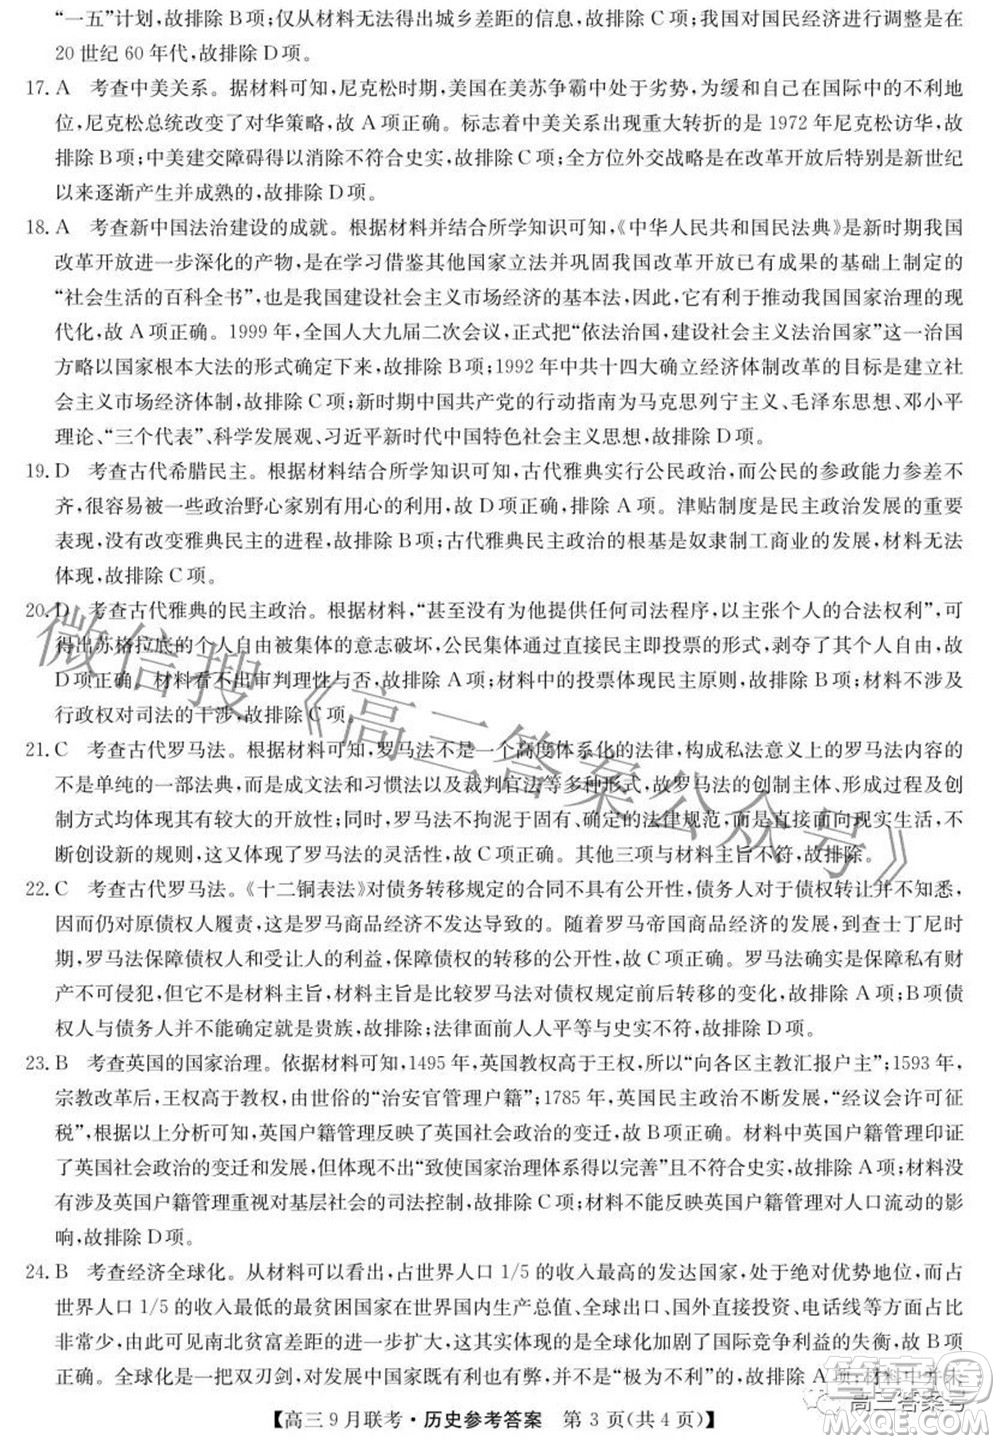 “一五”计划,故排除 B 项;仅从材料无法得出城乡差距的信息,故排除 C 项;我国对国民经济进行调整是在
20 世纪 60 年代,故排除 D 项。
17. A 考查中美关系。据材料可知,尼克松时期,美国在美苏争霸中处于劣势,为缓和和改善自己在国际中的不利地
位,尼克松总统改变了对华策略,故 A 项正确。标志着中美关系出现重大转折的是 1972 年尼克松访华,故
排除 B 项;中美建交障碍得以消除不符合史实,故排除 C 项;全方位外交战略是在改革开放后特别是新世纪
以来逐渐产生并成熟的,故排除 D 项。
18. A 考查新中国法治建设的成就。根据材料并结合所学知识可知,《中华人民共和国民法典》是新时期我国
改革开放进一步深化的产物,是在学习借鉴其他国家立法并巩固我国改革开放已有成果的基础上制定的
“社会生活的百科全书”,也是我国建设社会主义市场经济的基本法,因此,它有利于推动我国国家治理的现
代化,故 A 项正确。1999 年,全国人大九届二次会议,正式把“依法治国,建设社会主义法治国家”这一治国
方略以国家根本大法的形式确定下来,故排除 B 项;1992 年中共十四大确立经济体制改革的目标是建立社
会主义市场经济体制,故排除 C 项;新时期中国共产党的行动指南为马克思列宁主义、毛泽东思想、邓小平
理论、“三个代表”、科学发展观、习近平新时代中国特色社会主义思想,故排除 D 项。
19. D 考查古代希腊民主。根据材料结合所学知识可知,古代雅典实行公民政治,而公民的参政能力参差不
齐,故容易被一些政治野心家别有用心的利用,故 D 项正确,排除 A 项。津贴制度是民主政治发展的重要
表现,没有改变雅典民主的进程,故排除 B 项;古代雅典民主政治的根基是奴隶制工商业的发展,材料无法
体现,故排除 C 项。
20. D 考查古代雅典的民主政治。根据材料,“甚至没有为他提供任何司法程序,以主张个人的合法权利”,可
得出苏格拉底的个人自由被集体的意志破坏,公民集体通过直接民主投票的形式,剥夺了其个人的自由,故
D 项正确。材料看不出审判理性与否,故排除 A 项;材料中的投票体现民主原则,故排除 B 项;材料不涉及
行政权对司法的干涉,故排除 C 项。
21. C 考查古代罗马法。根据材料可知,罗马法不是一个高度体系化的法律,构成私法意义上的罗马法内容的
不是单纯的一部法典,而是成文法和习惯法以及裁判官法等多种形式,故罗马法的创制主体、形成过程及创
制方式均体现出其有较大的开放性;同时,罗马法不拘泥于固有、确定的法律规范,而是直接面向现实生活,不
断创设新的规则,这又体现了罗马法的灵活性,故 C 项正确。其他三项与材料不符,故排除。
22. C 考查古代罗马法。《十二铜表法》对债务转移规定的合同不具有公开性,债务人对于债权转让并不知悉,
因而仍对原债权人履责,这是罗马商品经济不发达导致的。随着罗马帝国商品经济的发展,到查士丁尼时
期,罗马法保障债权人和受让人的利益,保障债权的转移的公开性,故 C 项正确。罗马法一直保障私有财
产不可侵犯,但它不是材料主旨,材料主旨是比较罗马法对债权规定前后转移的变化,故排除 A 项;B 项债
权人与债务人并不能确定就是贵族,故排除;法律面前人人平等与史实不符,故排除 D 项。
23. B 考查英国的国家治理。依据材料可知,1495 年,英国教权高于王权,所以“向各区主教汇报户主”;1593 年,
宗教改革后,王权高于教权,由世俗的“治安官管理户籍”;1785 年,英国民主政治不断发展,“经议会许可征
税”,根据以上分析可知,英国户籍管理反映了英国社会政治的变迁,故 B 项正确。材料中英国户籍管理印证
了英国社会政治的变迁和发展,“致使国家治理体系得到了完善”其表述不妥,故排除 A 项;材料没
有涉及英国户籍管理重视对基层社会的司法控制,故排除 C 项;材料不能反映户籍管理对人口流动的影
响,故排除 D 项。
24. B 考查经济全球化。从材料可以看出,占世界人口 1/5 的收入最高的发达国家,处于绝对优势地位,而占
世界人口 1/5 的收入最低的最贫困国家在世界国内生产总值、全球出口、国外直接投资、电话线等方面占比
非常少,由此可见南北贫富差距的进一步扩大,这其实体现的是全球化加剧了国际竞争利益的失衡,故 B 项
正确。全球化是一把双刃剑,对发展中国家既有利也有弊,并不是“利大于弊”,故排除 A 项;材料中并未
【高三 9 月联考·历史参考答案 第 3 页(共 4 页)】
微信搜《高三答案公众号》
高三答案号
答案圈
MXQE.COM